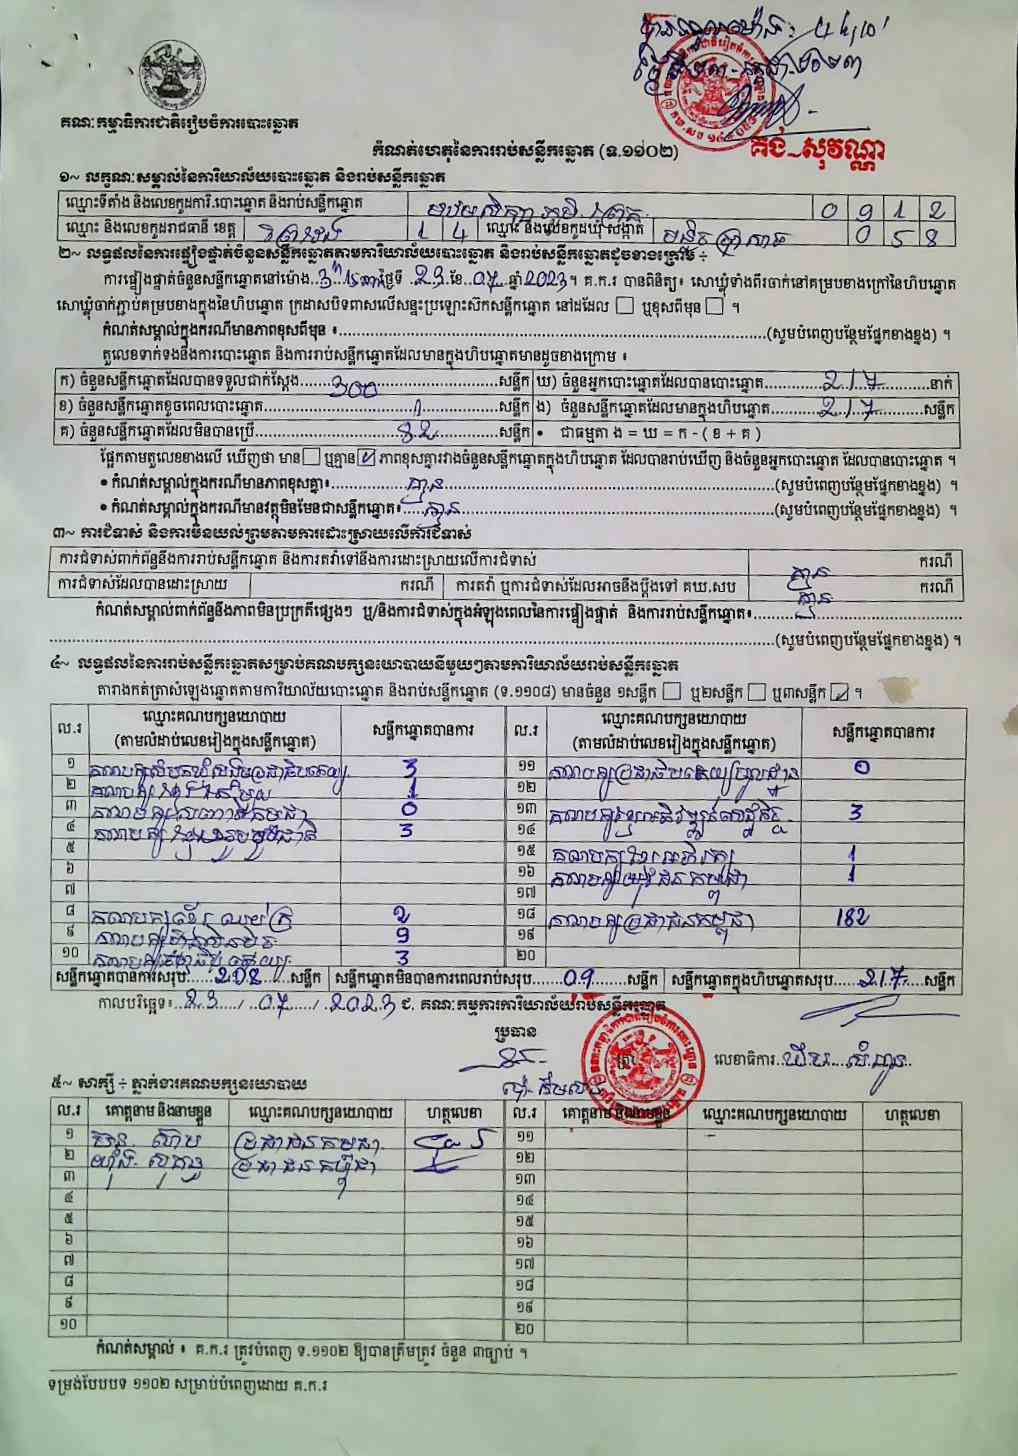 គណៈកម្មាធិការជាតិរៀបចំការបោះឆ្នោត
កំណត់ហេតុនៃការរាប់សន្លឹកឆ្នោត (ទ.១១០២)
គង់ សុវណ្ណា
១~ លក្ខណៈសម្គាល់នៃការិយាល័យបោះឆ្នោត និងរាប់សន្លឹកឆ្នោត
ឈ្មោះទីតាំង និងលេខកូដការិ.បោះឆ្នោត និងរាប់សន្លឹកឆ្នោត 0 9 1 2
ឈ្មោះ និងលេខកូដរាជធានី ខេត្ត ព្រៃវែង 1 4 ឈ្មោះ និងលេខកូដឃុំ សង្កាត់ 0 5 8
២~ លទ្ធផលនៃការផ្ទៀងផ្ទាត់ចំនួនសន្លឹកឆ្នោតតាមការិយាល័យបោះឆ្នោត និងរាប់សន្លឹកឆ្នោតដូចខាងក្រោម ÷
ការផ្ទៀងផ្ទាត់ចំនួនសន្លឹកឆ្នោតនៅម៉ោង ថ្ងៃទី 23 ខែ 07 ឆ្នាំ 2023។ គ.ក.រ បានពិនិត្យ៖ សោឃ្លុំទាំងពីរចាក់នៅគម្របខាងក្រៅនៃហិបឆ្នោត
សោឃ្លុំចាក់ភ្ជាប់គម្របខាងក្នុងនៃហិបឆ្នោត ក្រដាសបិទពាសលើសន្ទះប្រឡោះស៊កសន្លឹកឆ្នោត នៅដដែល ☐ ឬខុសពីមុន ☐ ។
កំណត់សម្គាល់ក្នុងករណីមានភាពខុសពីមុន ៖ (សូមបំពេញបន្ថែមផ្នែកខាងខ្នង) ។
តួលេខទាក់ទងនឹងការបោះឆ្នោត និងការរាប់សន្លឹកឆ្នោតដែលមានក្នុងហិបឆ្នោតមានដូចខាងក្រោម ៖
ក) ចំនួនសន្លឹកឆ្នោតដែលបានទទួលជាក់ស្តែង 300 សន្លឹក ឃ) ចំនួនអ្នកបោះឆ្នោតដែលបានបោះឆ្នោត 217 នាក់
ខ) ចំនួនសន្លឹកឆ្នោតខូចពេលបោះឆ្នោត 1 សន្លឹក ង) ចំនួនសន្លឹកឆ្នោតដែលមានក្នុងហិបឆ្នោត 217 សន្លឹក
គ) ចំនួនសន្លឹកឆ្នោតដែលមិនបានប្រើ 82 សន្លឹក • ជាធម្មតា ង = ឃ = ក - ( ខ + គ )
ផ្អែកតាមតួលេខខាងលើ ឃើញថា មាន ☐ ឬគ្មាន ☑ ភាពខុសគ្នារវាងចំនួនសន្លឹកឆ្នោតក្នុងហិបឆ្នោត ដែលបានរាប់ឃើញ និងចំនួនអ្នកបោះឆ្នោត ដែលបានបោះឆ្នោត ។
• កំណត់សម្គាល់ក្នុងករណីមានភាពខុសគ្នា៖ គ្មាន (សូមបំពេញបន្ថែមផ្នែកខាងខ្នង) ។
• កំណត់សម្គាល់ក្នុងករណីមានវត្ថុមិនមែនជាសន្លឹកឆ្នោត៖ គ្មាន (សូមបំពេញបន្ថែមផ្នែកខាងខ្នង) ។
៣~ ការជំទាស់ និងការមិនយល់ព្រមតាមការដោះស្រាយលើការជំទាស់
ការជំទាស់ពាក់ព័ន្ធនឹងការរាប់សន្លឹកឆ្នោត និងការតវ៉ាទៅនឹងការដោះស្រាយលើការជំទាស់ គ្មាន ករណី
ការជំទាស់ដែលបានដោះស្រាយ ករណី ការតវ៉ា ឬការជំទាស់ដែលអាចនឹងប្តឹងទៅ គឃ.សប គ្មាន ករណី
កំណត់សម្គាល់ពាក់ព័ន្ធនឹងភាពមិនប្រក្រតីផ្សេងៗ ឬ/និងការជំទាស់ក្នុងអំឡុងពេលនៃការផ្ទៀងផ្ទាត់ និងការរាប់សន្លឹកឆ្នោត៖
(សូមបំពេញបន្ថែមផ្នែកខាងខ្នង) ។
៤~ លទ្ធផលនៃការរាប់សន្លឹកឆ្នោតសម្រាប់គណបក្សនយោបាយនីមួយៗតាមការិយាល័យរាប់សន្លឹកឆ្នោត
តារាងកត់ត្រាសំឡេងឆ្នោតតាមការិយាល័យបោះឆ្នោត និងរាប់សន្លឹកឆ្នោត (ទ.១១០៨) មានចំនួន ១សន្លឹក ☐ ឬ២សន្លឹក ☐ ឬ៣សន្លឹក ☑ ។
ល.រ ឈ្មោះគណបក្សនយោបាយ សន្លឹកឆ្នោតបានការ ល.រ ឈ្មោះគណបក្សនយោបាយ សន្លឹកឆ្នោតបានការ
(តាមលំដាប់លេខរៀងក្នុងសន្លឹកឆ្នោត) (តាមលំដាប់លេខរៀងក្នុងសន្លឹកឆ្នោត)
១ 3 ១១ គណបក្សប្រជាធិបតេយ្យមូលដ្ឋាន 0
២ 1 ១២
៣ 0 ១៣ 3
៤ គណបក្សខ្មែររួបរួមជាតិ 3 ១៤
៥ ១៥ គណបក្សខ្មែរអភិរក្ស 1
៦ ១៦ គណបក្សយុវជនកម្ពុជា 1
៧ ១៧
៨ 2 ១៨ គណបក្សប្រជាជនកម្ពុជា 182
៩ 9 ១៩
១០ 3 ២០
សន្លឹកឆ្នោតបានការសរុប 208 សន្លឹក សន្លឹកឆ្នោតមិនបានការពេលរាប់សរុប 09 សន្លឹក សន្លឹកឆ្នោតក្នុងហិបឆ្នោតសរុប 217 សន្លឹក
កាលបរិច្ឆេទ៖ 23 / 07 / 2023 ជ. គណៈកម្មការការិយាល័យរាប់សន្លឹកឆ្នោត
ប្រធាន
លេខាធិការ
៥~ សាក្សី ÷ ភ្នាក់ងារគណបក្សនយោបាយ
ល.រ គោត្តនាម និងនាមខ្លួន ឈ្មោះគណបក្សនយោបាយ ហត្ថលេខា ល.រ គោត្តនាម និងនាមខ្លួន ឈ្មោះគណបក្សនយោបាយ ហត្ថលេខា
១ ប្រជាជនកម្ពុជា ១១
២ ប្រជាជនកម្ពុជា ១២
៣ ១៣
៤ ១៤
៥ ១៥
៦ ១៦
៧ ១៧
៨ ១៨
៩ ១៩
១០ ២០
កំណត់សម្គាល់ ៖ គ.ក.រ ត្រូវបំពេញ ទ.១១០២ ឱ្យបានត្រឹមត្រូវ ចំនួន ៣ច្បាប់ ។
ទម្រង់បែបបទ ១១០២ សម្រាប់បំពេញដោយ គ.ក.រ